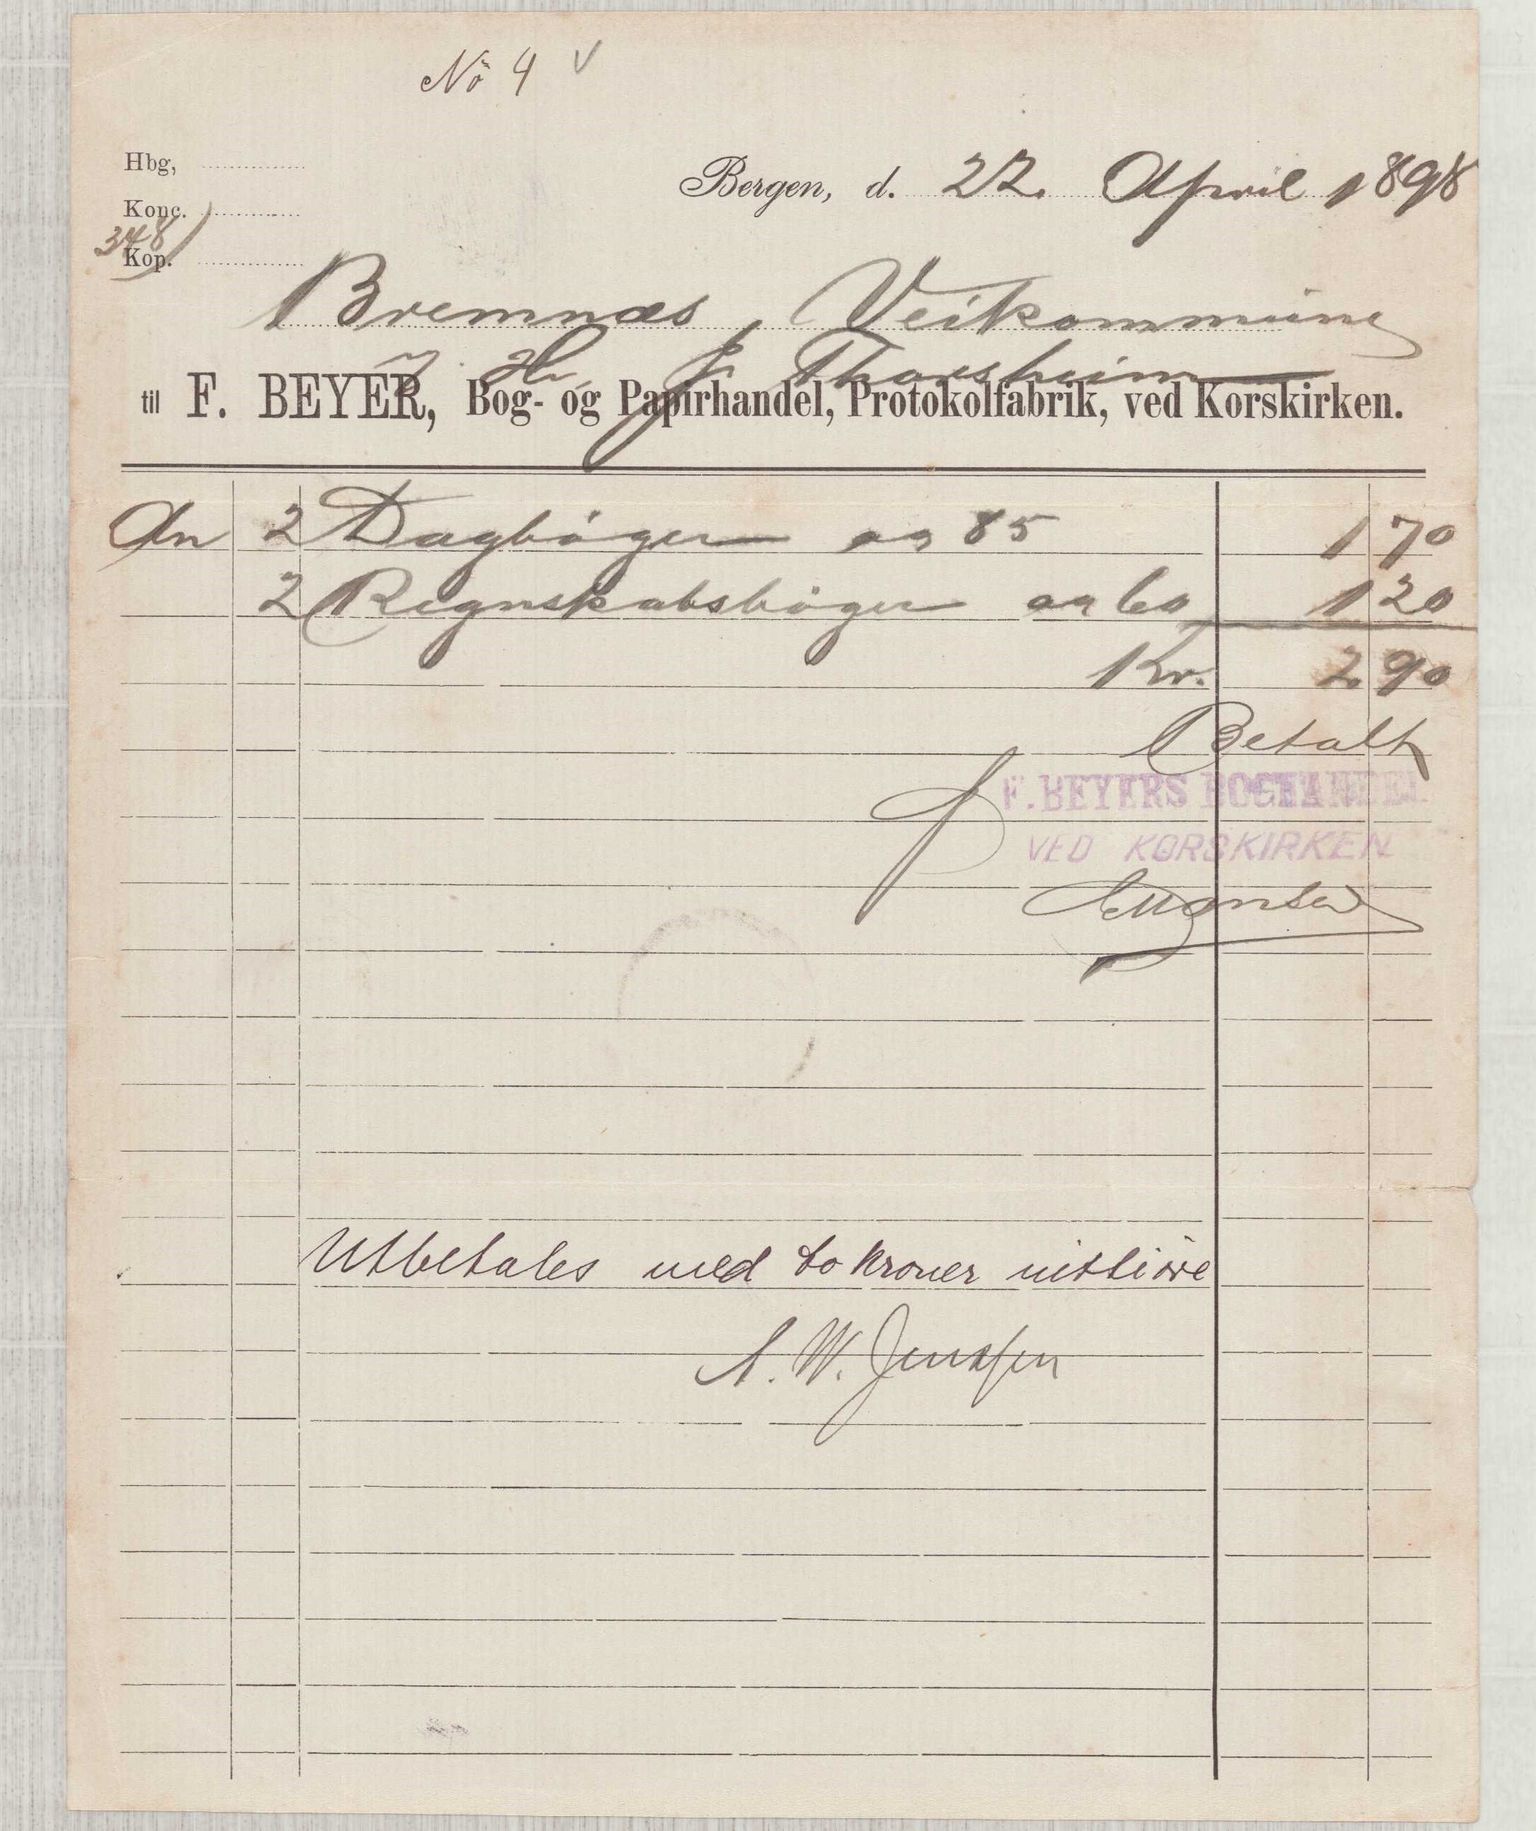 No 4 v
Hbg,
Bergen, d. 22. April 1898
Konc.
348
Kop.
Bremnæs Veikommune
Hr. J. Thorsheim
til F. BEYER, Bog- og Papirhandel, Protokolfabrik, ved Korskirken.
An 2 Dagbøger ag 85 1 70
2 Regnskabsbøger ag 60 1 20
Kr. 2 90
Betalt
F. BEYERS BOGHANDEL
VED KORSKIRKEN
Utbetales med to kroner nitti øre
A. W. Jenssen